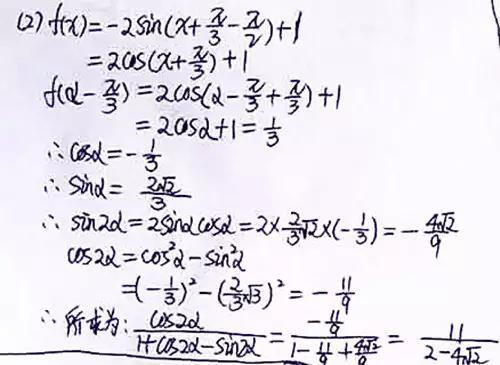 (2) f(x)=-2sin(x+π/3-π/2)+1
=2cos(x+π/3)+1
f(α-π/3)=2cos(α-π/3+π/3)+1
=2cosα+1=1/3
∴cosα=-1/3
∴sinα=2√2/3
∴sin2α=2sinαcosα=2×2/3√2×(-1/3)=-4√2/9
cos2α=cos²α-sin²α
=(-1/3)²-(2/3√3)²=-11/9
∴所求为:cos2α/(1+cos2α-sin2α)=(-11/9)/(1-11/9+4√2/9)=11/(2-4√2)